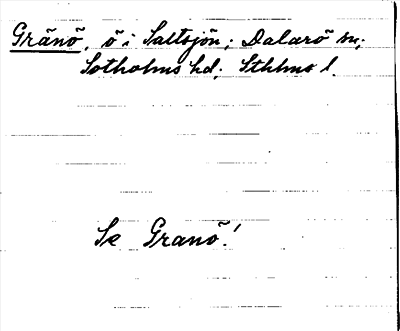 Gränö, ö i Saltsjön; Dalarö sn;
Sotholms hd; Sthlms l.
Se Granö!